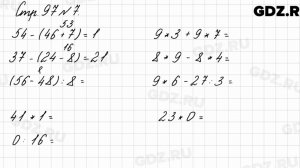 Стр. 97 № 7.
GDZ.RU
53
54 - (46 + 7) = 1
9 * 3 + 9 * 7 =
16
37 - (24 - 8) = 21
8 * 9 - 8 * 4 =
8
(56 - 48) : 8 =
9 * 6 - 27 : 3 =
41 * 1 =
23 * 0 =
0 : 16 =